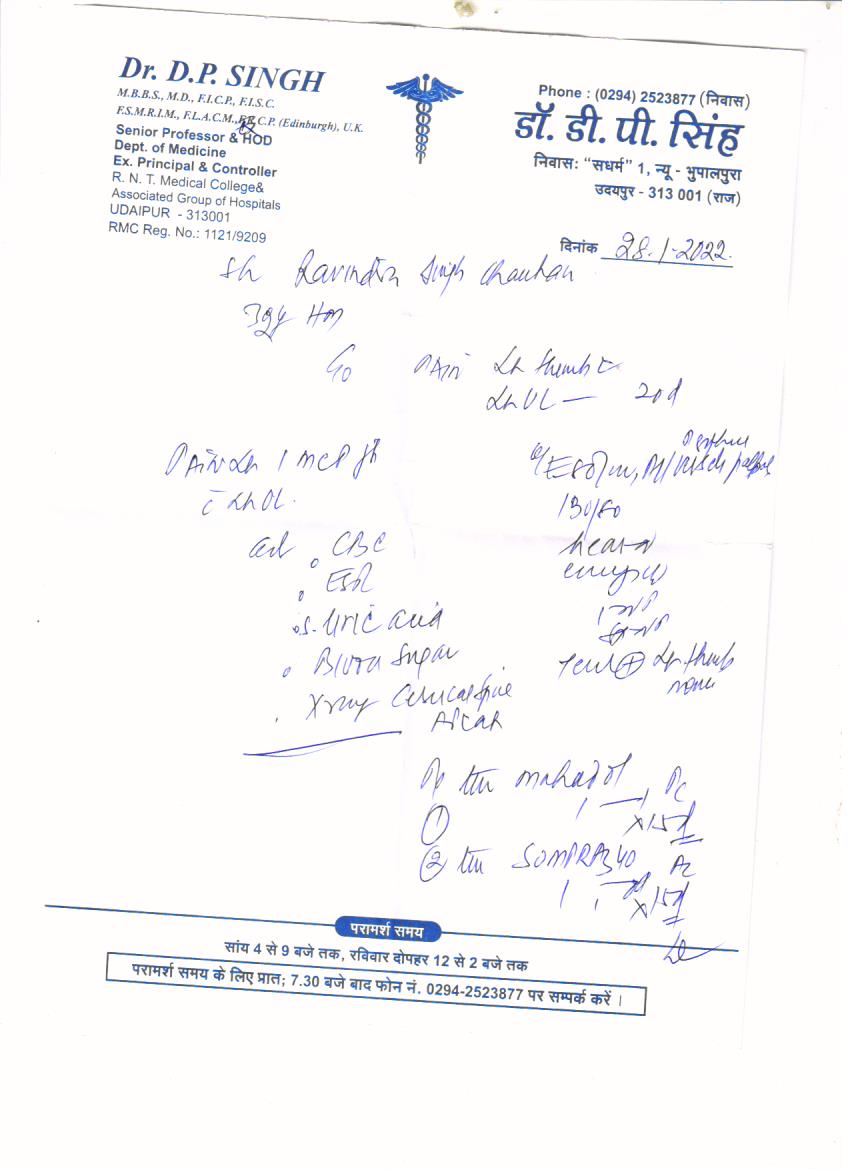 Dr. D.P. SINGH
M.B.B.S., M.D., F.I.C.P., F.I.S.C.
F.S.M.R.I.M., F.L.A.C.M., C.P. (Edinburgh), U.K.
Senior Professor & HOD
Dept. of Medicine
Ex. Principal & Controller
R. N. T. Medical College&
Associated Group of Hospitals
UDAIPUR - 313001
RMC Reg. No.: 1121/9209
Phone : (0294) 2523877 (निवास)
डॉ. डी. पी. सिंह
निवास: “सधर्म” 1, न्यू - भुपालपुरा
उदयपुर - 313 001 (राज)
दिनांक 28.1.2022.
Sh Ravindra Singh Chauhan
C/o PAIN Lt thumb c
Lt UL — 20d
PAIN Lt 1 MCP Jt
c Lt UL.
130/80
Adv CBC
ESR
S. Uric acid
Blood Sugar
Xray Cervical Spine
AP Lat
heart
Tend ⊕ Lt thumb
Rx
① PC
x15d
② SOMPRAZ 40 AC
x15d
परामर्श समय
सांय 4 से 9 बजे तक, रविवार दोपहर 12 से 2 बजे तक
परामर्श समय के लिए प्रात; 7.30 बजे बाद फोन नं. 0294-2523877 पर सम्पर्क करें ।